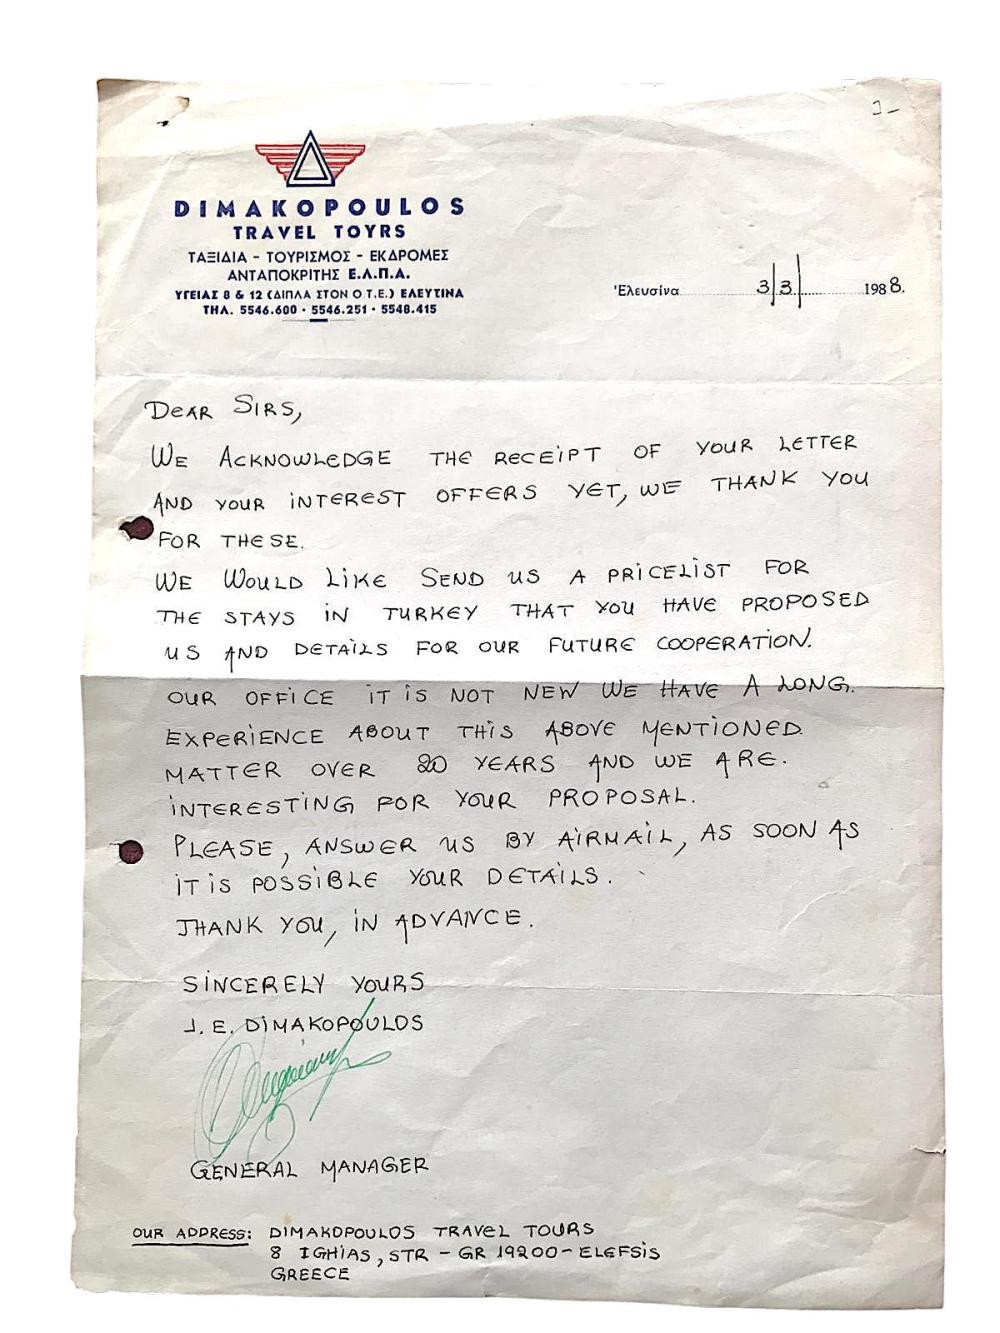 DIMAKOPOULOS
TRAVEL TOYRS
ΤΑΞΙΔΙΑ - ΤΟΥΡΙΣΜΟΣ - ΕΚΔΡΟΜΕΣ
ΑΝΤΑΠΟΚΡΙΤΗΣ Ε.Λ.Π.Α.
ΥΓΕΙΑΣ 8 & 12 (ΔΙΠΛΑ ΣΤΟΝ Ο.Τ.Ε.) ΕΛΕΥΣΙΝΑ
ΤΗΛ. 5546.600 · 5546.251 · 5548.415
Ἐλευσίνα 3/3/ 1988.
DEAR SIRS,
WE ACKNOWLEDGE THE RECEIPT OF YOUR LETTER
AND YOUR INTEREST OFFERS YET, WE THANK YOU
FOR THESE.
WE WOULD LIKE SEND US A PRICELIST FOR
THE STAYS IN TURKEY THAT YOU HAVE PROPOSED
US AND DETAILS FOR OUR FUTURE COOPERATION.
OUR OFFICE IT IS NOT NEW WE HAVE A LONG.
EXPERIENCE ABOUT THIS ABOVE MENTIONED
MATTER OVER 20 YEARS AND WE ARE.
INTERESTING FOR YOUR PROPOSAL.
PLEASE, ANSWER US BY AIRMAIL, AS SOON AS
IT IS POSSIBLE YOUR DETAILS.
THANK YOU, IN ADVANCE.
SINCERELY YOURS
J. E. DIMAKOPOULOS
GENERAL MANAGER
OUR ADDRESS: DIMAKOPOULOS TRAVEL TOURS
8 IGHIAS, STR - GR 19200 - ELEFSIS
GREECE